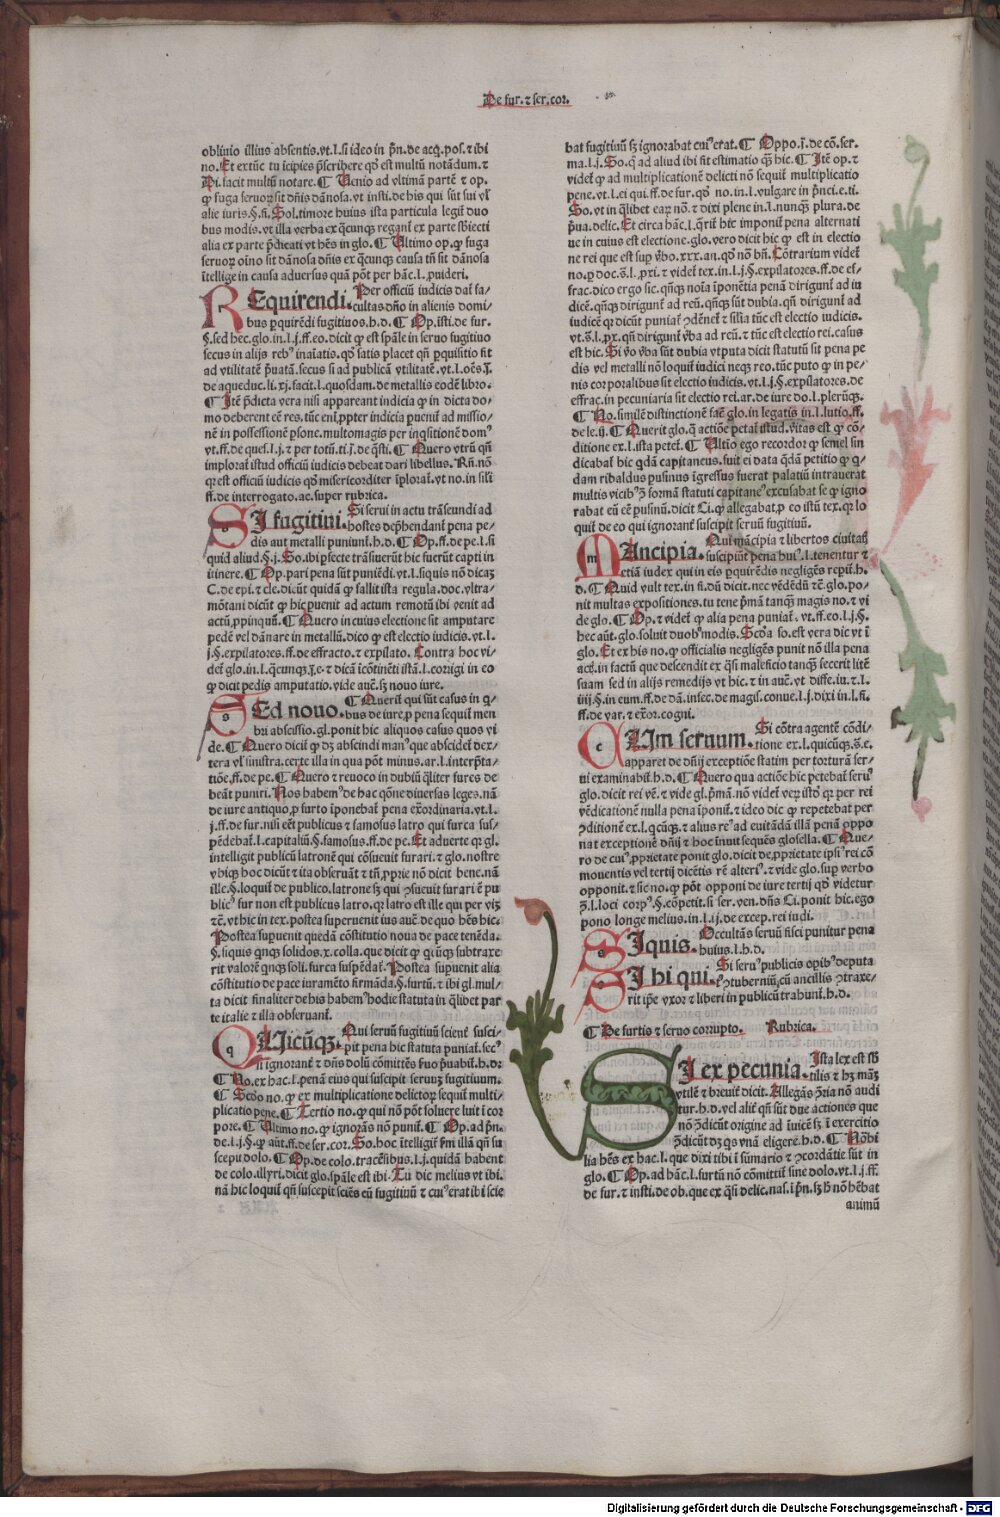 De fur. ⁊ ser. cor.
obliuio illius absentis. vt. l. si ideo in p̄n. de acq̄. pos. ⁊ ibi
no. Et extūc tu īcipies p̄scribere qđ est multū notādum. ⁊
Pi. facit multū notare. ¶ Uenio ad vltimā partē ⁊ op.
alie iuris. §. fi. Sol. timore huius ista particula legit duo
bus modis. vt illa verba ex q̄cunqꝫ regant̄ ex parte sbiecti
alia ex parte p̄dicati vt hēs in glo. ¶ Ultimo op. ꝙ fuga
seruoꝝ oīno sit dānosa dn̄is ex q̄cunqꝫ causa tn̄ sit dānosa
ītellige in causa aduersus quā pōt per hāc. l. ꝓuideri.
REquirendi. Per officiū iudicis dat̄ fa⸗
cultas dn̄o in alienis domi⸗
bus ꝑquirēdi fugitiuos. h. d. ¶ Op. isti. de fur.
§. sed hec. glo. in. l. j. ff. eo. dicit ꝙ est sp̄ale in seruo fugitiuo
secus in alijs rebꝰ inaīatis. qđ satis placet qn̄ ꝑquisitio fit
ad vtilitatē p̄uatā. secus si ad publicā vtilitatē. vt. l. oēs. §.
de aqueduc. li. xj. facit. l. quosdam. de metallis eodē libro.
¶ Itē p̄dicta vera nisi appareant indicia ꝙ in dicta do⸗
mo deberent eē res. tūc eni ꝓpter indicia ꝑuenit̄ ad missio⸗
nē in possessionē ꝑsone. multomagis per inqsitionē domꝰ
vt. ff. de quest. l. j. ⁊ per totū. ti. j. de q̄sti. ¶ Quero vtrū qn̄
implorat̄ istud officiū iudicis debeat dari libellus. Rn̄. nō
qꝛ est officiū iudicis qđ misericorditer īplorat̄. vt no. in sili
ff. de interrogato. ac. super rubrica.
SI fugitiui. Si serui in actu trāseundi ad
hostes dep̄hendant̄ pena pe⸗
dis aut metalli puniunt̄. h. d. ¶ Op. ff. de pe. l. si
quid aliud. §. j. So. ibi ꝑfecte trāsiuerūt hic fuerūt capti in
itinere. ¶ Op. pari pena sūt puniēdi. vt. l. siquis nō dicaꝫ
C. de epi. ⁊ cle. dicūt quidā ꝙ fallit ista regula. doc. vltra⸗
mōtani dicūt ꝙ hic ꝑuenit ad actum remotū ibi venit ad
actū ꝓpinquū. ¶ Quero in cuius electione sit amputare
pedē vel dānare in metallū. dico ꝙ est electio iudicis. vt. l.
j. §. expilatores. ff. de effracto. ⁊ expilato. Contra hoc vi⸗
det̄ glo. in. l. q̄cunqꝫ. j. e. ⁊ dicā īcōtinēti istā. l. corrigi in eo
ꝙ dicit pedis amputatio. vide autē. sꝫ nouo iure.
SEd nouo. ¶ Querit̄ qui sūt casus in q̄⸗
bus de iure. ꝓ pena sequit̄ men
bri abscissio. gl. ponit hic aliquos casus quos vi
de. ¶ Quero dicit̄ ꝙ dꝫ abscindi manꝰ que abscidet̄ dex⸗
tera vl̓ sinistra. certe illa in qua pōt minus. ar. l. interp̄ta⸗
tiōe. ff. de pe. ¶ Quero ⁊ reuoco in dubiū q̄liter fures de
beāt puniri. Nos habemꝰ de hac q̄one diuersas leges. nā
de iure antiquo. ꝓ furto īponebat̄ pena ex̄ordinaria. vt. l.
j. ff. de fur. nisi cēt publicus ⁊ famosus latro qui furca sus⸗
pēdebat̄. l. capitaliū. §. famosus. ff. de pe. Et aduerte qꝛ gl.
intelligit publicū latronē qui cōsueuit furari. ⁊ glo. nostre
vbiqꝫ hoc dicūt ⁊ ita obseruāt ⁊ tn̄. ꝓprie nō dicit bene. nā
ille. §. loquit̄ de publico. latrone sꝫ qui ꝯsueuit furari ē pu
blicꝰ fur non est publicus latro. qꝛ latro est ille qui per viꝫ
⁊c̄. vt hic in tex. postea superuenit ius autē de quo hēs hic.
Postea supuenit quedā cōstitutio noua de pace tenēda.
§. siquis q̄nqꝫ solidos. x. colla. que dicit ꝙ qcūqꝫ subtraxe
rit valorē q̄nqꝫ soli. furca suspēdat̄. Postea supuenit alia
cōstitutio de pace iuramēto firmāda. §. furtū. ⁊ ibi gl. mul⸗
ta dicit finaliter de his habemꝰ hodie statuta in q̄libet par
te italie ⁊ illa obseruant̄.
QUicūqꝫ. Qui seruū fugitiuū scient̄ susci⸗
pit pena hic statuta puniat̄. secꝰ
si ignorant̄ ⁊ dn̄s dolū cōmittēs ẜuo p̄uabit̄. h. d.
¶ No. ex hac. l. penā eius qui suscipit seruuꝫ fugitiuum.
¶ Scđo no. ꝙ ex multiplicatione delictoꝝ sequit̄ multi⸗
plicatio pene. ¶ Tertio no. ꝙ qui nō pōt soluere luit ī cor
pore. ¶ Ultimo no. ꝙ ignorās nō punit̄. ¶ Op. ad p̄n.
de. l. j. §. ꝙ aūt. ff. de ser. cor. So. hoc ītelligit̄ ẜm illā qn̄ su
scepit dolo. ¶ Op. de colo. tracēsibus. l. j. quidā habent
de colo. illyri. dicit glo. sp̄ale est ibi. Tu dic melius vt ibi.
nā hic loquit̄ qn̄ suscepit sciēs eū fugitiuū ⁊ cuiꝰ erat ibi scie
bat fugitiuū sꝫ ignorabat cuiꝰ erat. ¶ Oppo. j. de cō. ser.
ma. l. j. So. q̄ ad aliud ibi fit estimatio q̄ꝫ hic. ¶ Itē op. ⁊
videt̄ ꝙ ad multiplicationē delicti nō sequit̄ multiplicatio
pene. vt. l. ei qui. ff. de fur. qđ no. in. l. vulgare in p̄nci. e. ti.
So. vt in q̄libet eaꝝ nō. ⁊ dixi plene in. l. nunqꝫ plura. de
p̄ua. delic. Et circa hāc. l. q̄rit̄ hic imponit̄ pena alternati
ue in cuius est electione. glo. vero dicit hic ꝙ est in electio
ne rei que est sup ꝟbo. xxx. an. qđ nō bn̄. Cōtrarium videt̄
no. ꝓ doc. s̄. l. ꝓxi. ⁊ videt̄ tex. in. l. j. §. expilatores. ff. de ef⸗
frac. dico ergo sic. qn̄qꝫ noīa īponētia penā dirigunt̄ ad iu
dicē. qn̄qꝫ dirigunt̄ ad reū. qn̄qꝫ sūt dubia. qn̄ dirigunt̄ ad
iudicē qꝛ dicūt puniat̄ ꝯdēnet̄ ⁊ silia tūc est electio iudicis.
vt. s̄. l. ꝓx. qn̄ dirigunt̄ ꝟba ad reū. ⁊ tūc est electio rei. casus
est hic. Si ꝟo ꝟba sūt dubia vtputa dicit statutū sit pena pe
dis vel metalli nō loquit̄ iudici neqꝫ reo. tūc puto ꝙ in pe⸗
nis corporalibus sit electio iudicis. vt. l. j. §. expilatores. de
effrac. in pecuniaria sit electio rei. ar. de iure do. l. plerūqꝫ.
¶ No. similē distinctionē facē glo. in legatis in. l. lutio. ff.
de le. ij. ¶ Querit glo. q̄ actiōe petat̄ istud. vitas est ꝙ cō⸗
ditione ex. l. ista petet̄. ¶ Ultīo ego recordor ꝙ semel sin
dicabat̄ hic qdā capitaneus. fuit ei data qdā petitio ꝙ q⸗
dam ribaldus pusinus īgressus fuerat palatiū intrauerat
multis vicibꝰ ꝯ̄ formā statuti capitanꝰ excusabat se ꝙ igno
rabat eū cē pusinū. dicit Ci. ꝙ allegabat. ꝓ eo istū tex. qꝛ lo
quit̄ de eo qui ignorant̄ suscipit seruū fugitiuū.
MAncipia. Qui mācipia ⁊ libertos ciuitatꝫ
suscipiūt pena huiꝰ. l. tenentur ⁊
etiā iudex qui in eis ꝑquirēdis negligēs reperit̄. h.
d. ¶ Quid vult tex. in fi. dū dicit. nec vēdēdū ⁊c̄. glo. po⸗
nit multas expositiones. tu tene p̄mā tanqꝫ magis no. ⁊ vi
de glo. ¶ Op. ⁊ videt̄ ꝙ alia pena puniat̄. vt. ff. eo. l. j. §.
hec aūt. glo. soluit duobꝰ modis. Scđa so. est vera dic vt ī
glo. Et ex his no. ꝙ officialis negligēs punit̄ nō illa pena
acq̄. in factū que descendit ex q̄si maleficio tanqꝫ fecerit litē
suam sed in alijs remedijs vt hic. ⁊ in autē. vt. diffe. iu. ⁊. l.
iiij. §. in eum. ff. de dā. infec. de magis. conue. l. j. dixi in. l. fi.
ff. de var. ⁊ ex̄or. cogni.
CUm seruum. Si cōtra agentē cōdi⸗
tione ex. l. quicūqꝫ. s̄. e.
apparet de dn̄ij exceptiōe statim per torturā ser⸗
ui examinabit̄. h. d. ¶ Quero qua actiōe hic petebat̄ seruꝰ
glo. dicit rei vē. ⁊ vide gl. p̄mā. nō videt̄ veꝝ istđ qꝛ per rei
vēdicationē nulla pena īponit̄. ⁊ ideo dic ꝙ repetebat̄ per
ꝯditionē ex. l. qcūqꝫ. ⁊ alius reꝰ ad euitādā illā penā oppo
nat exceptionē dn̄ij ⁊ hoc īnuit sequēs glosella. ¶ Que⸗
ro de cuiꝰ. ꝓprietate ponit glo. dicit de. ꝓprietate ipsiꝰ rei cō
mouentis vel tertij dicētis rē alteriꝰ. ⁊ vide glo. sup verbo
opponit. ⁊ sic no. ꝙ pōt opponi de iure tertij qđ videtur
ꝯ̄. l. loci corpꝰ. §. cōpetit. si ser. ven. dn̄s Ci. ponit hic. ego
pono longe melius. in. l. ij. de excep. rei iudi.
SIquis. Occultās seruū fisci punitur pena
huius. l. h. d.
SI hi qui. Si seruꝰ publicis opibꝰ deputa
ꝯtuberniū cū ancillis ꝯtraxe⸗
rit ip̄e vxor ⁊ liberi in publicū trahunt̄. h. d.
¶ De furtis ⁊ seruo corrupto. Rubrica.
SI ex pecunia. Ista lex est sb̄
tilis ⁊ hꝫ māꝫ
vtilē ⁊ breuit̄ dicit. Allegās ꝯ̄ria nō audi
tur. h. d. vel alit̄ qn̄ sūt due actiones que
nō ꝯ̄dicūt origine ad īuicē sꝫ ī exercitio
ꝯ̄dicūt dꝫ qs vnā eligere. h. d. ¶ Nōbi
lia hēs ex hac. l. que dixi tibi ī sūmario ⁊ ꝯcordātie sūt in
glo. ¶ Op. ad hāc. l. furtū nō cōmittit̄ sine dolo. vt. l. j. ff.
de fur. ⁊ insti. de ob. que ex q̄si delic. nas. ī p̄n. sꝫ h̄ nō hēbat
animū
Digitalisierung gefördert durch die Deutsche Forschungsgemeinschaft - DFG